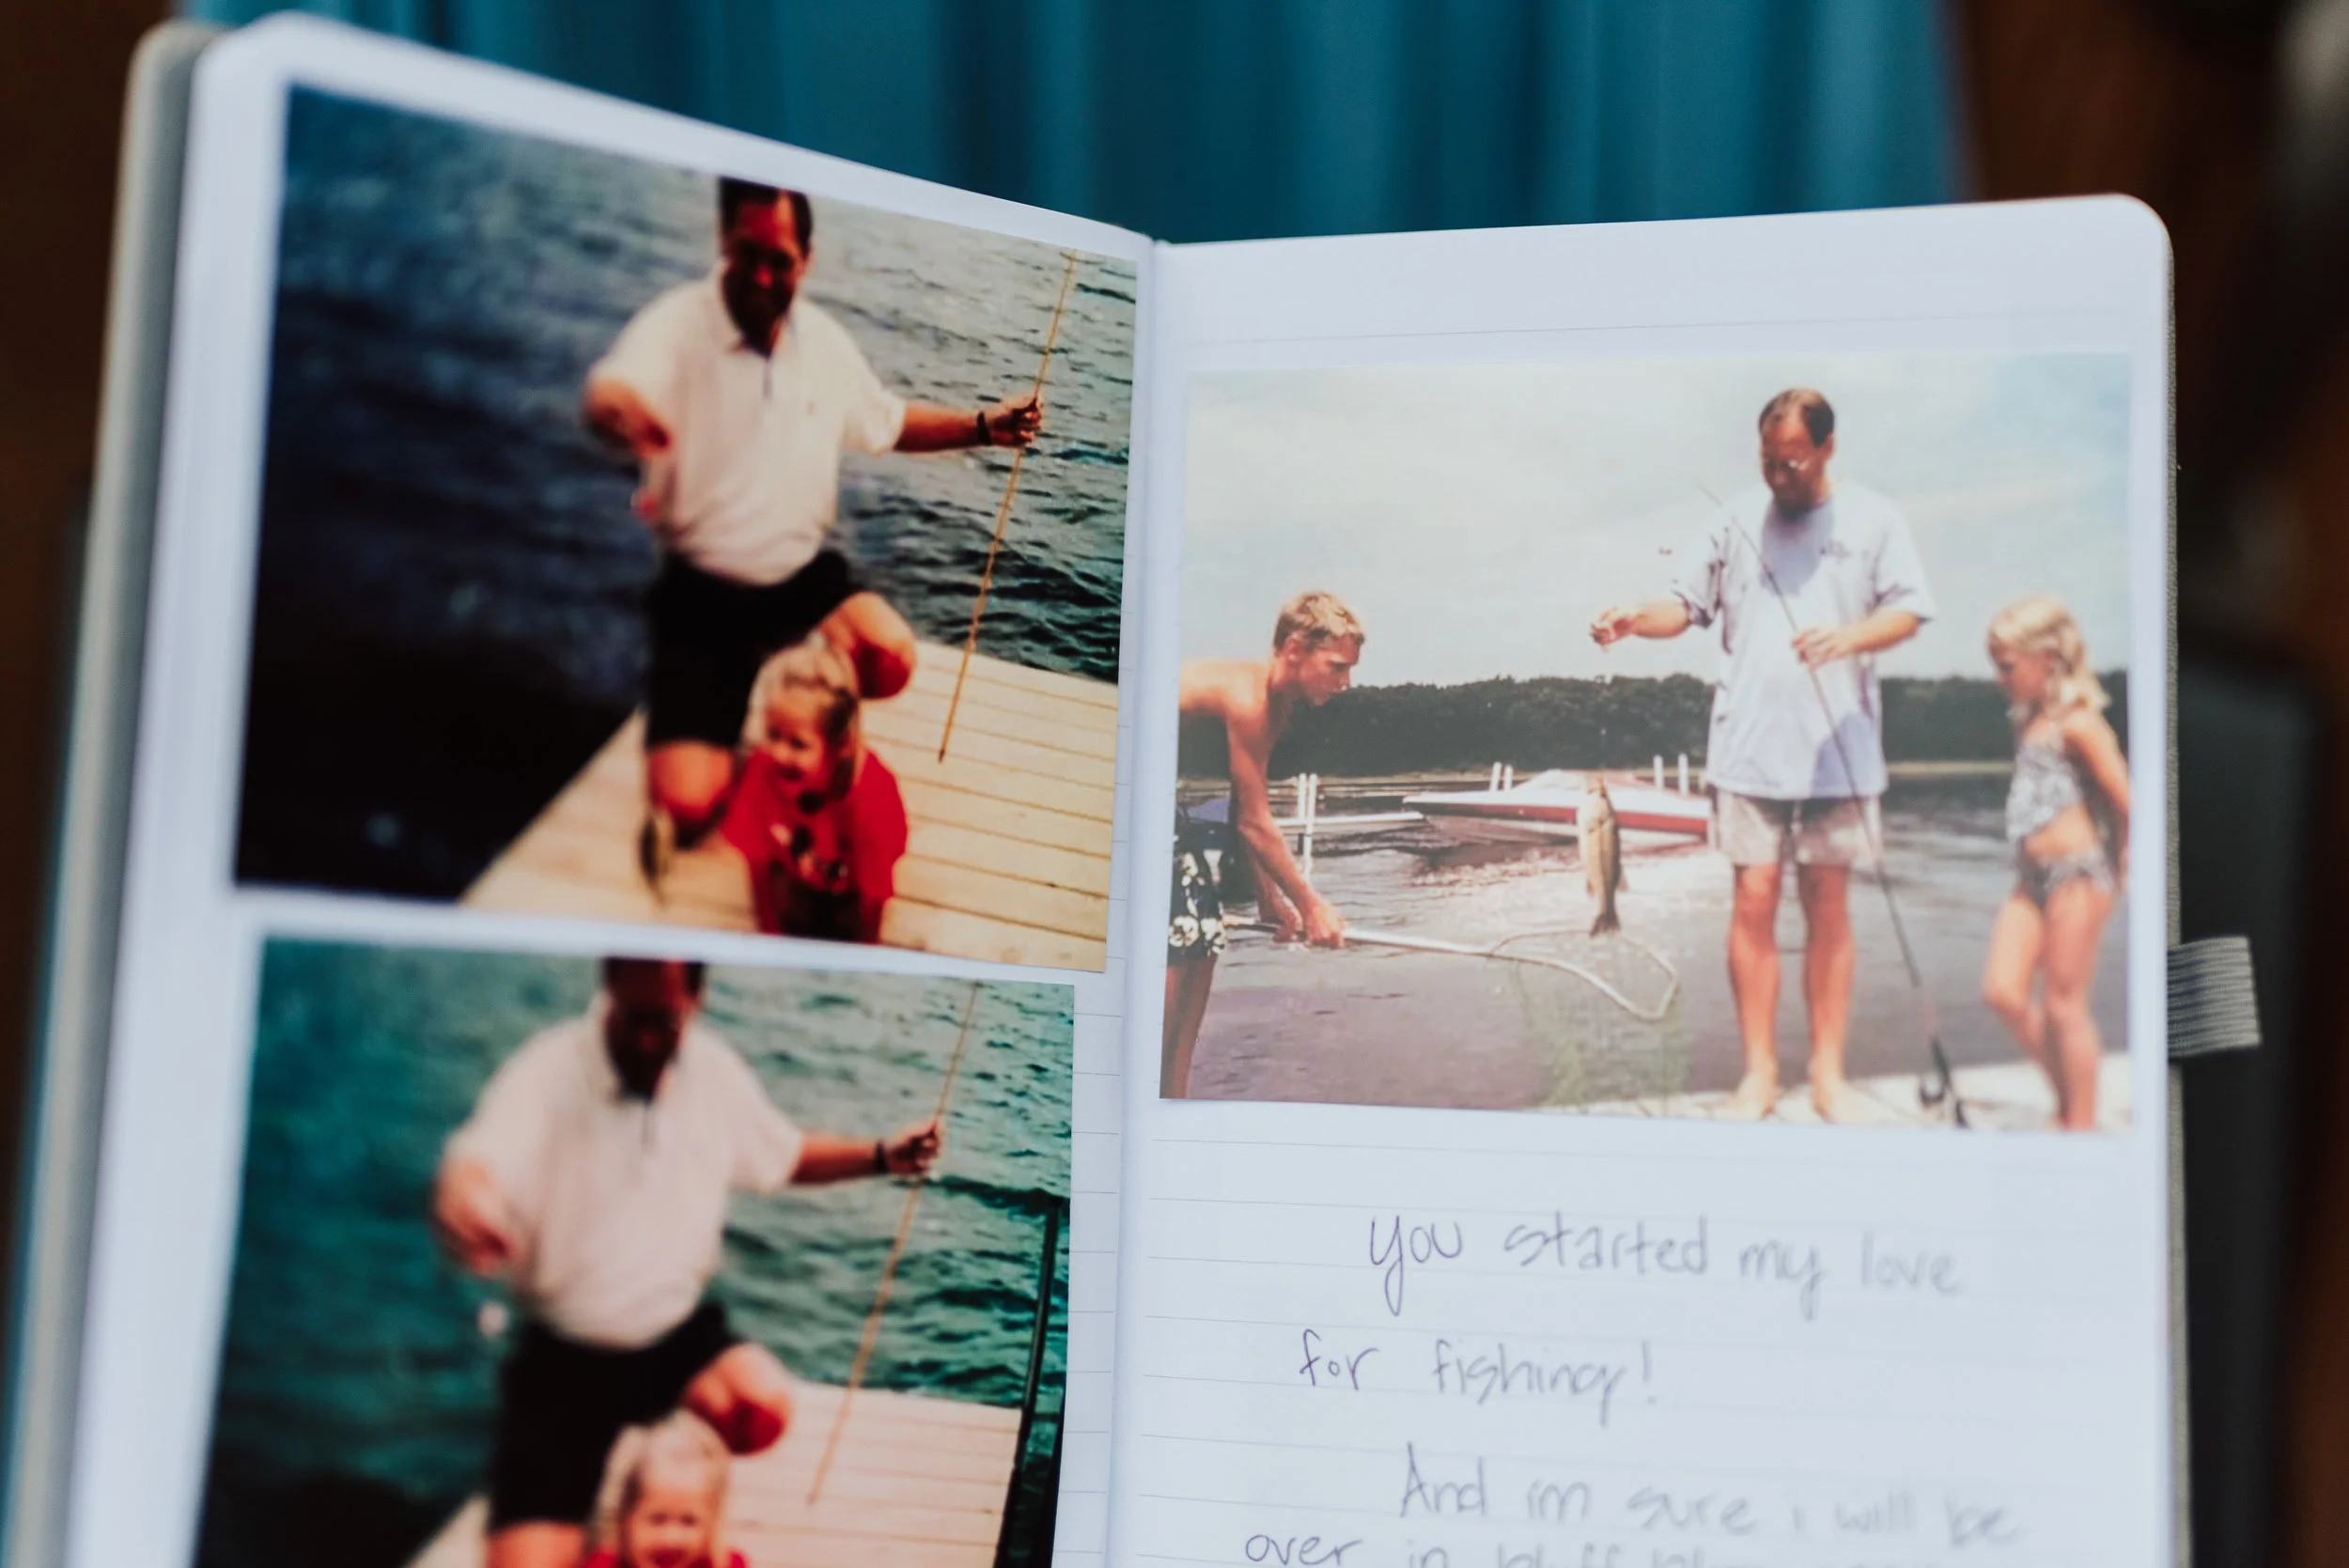 you started my love
for fishing!
And im sure i will be
over in bluff